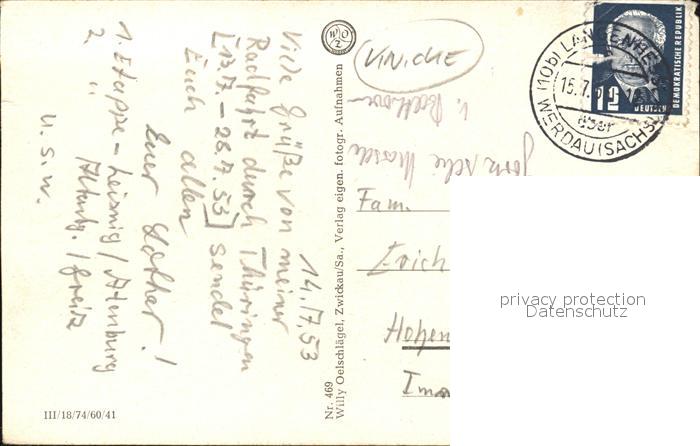 14./7.53
Viele Grüße von meiner
Radfahrt durch Thüringen
[13.7. – 26.7.53] sendet
Euch allen
Euer Lothar!
1. Etappe – Leisnig / Altenburg
2. " Altenbg. / Greiz
u. s. w.
WOZ
Nr. 469
Willy Oelschlägel, Zwickau/Sa., Verlag eigen. fotogr. Aufnahmen
III/18/74/60/41
v. Beethoven
Fam.
Erich
Hohen
(10b) LANGENHE
15.7.
über
WERDAU (SACHS)
12
DEUTSCHE
DEMOKRATISCHE REPUBLIK
privacy protection
Datenschutz